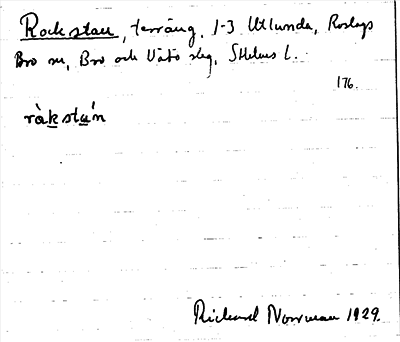 Rockstan, terräng. 1-3 Utlunda, Roslags
Bro sn, Bro och Vätö slg, Sthlms l.
176.
ràksta´n
Richard Norrman 1929.